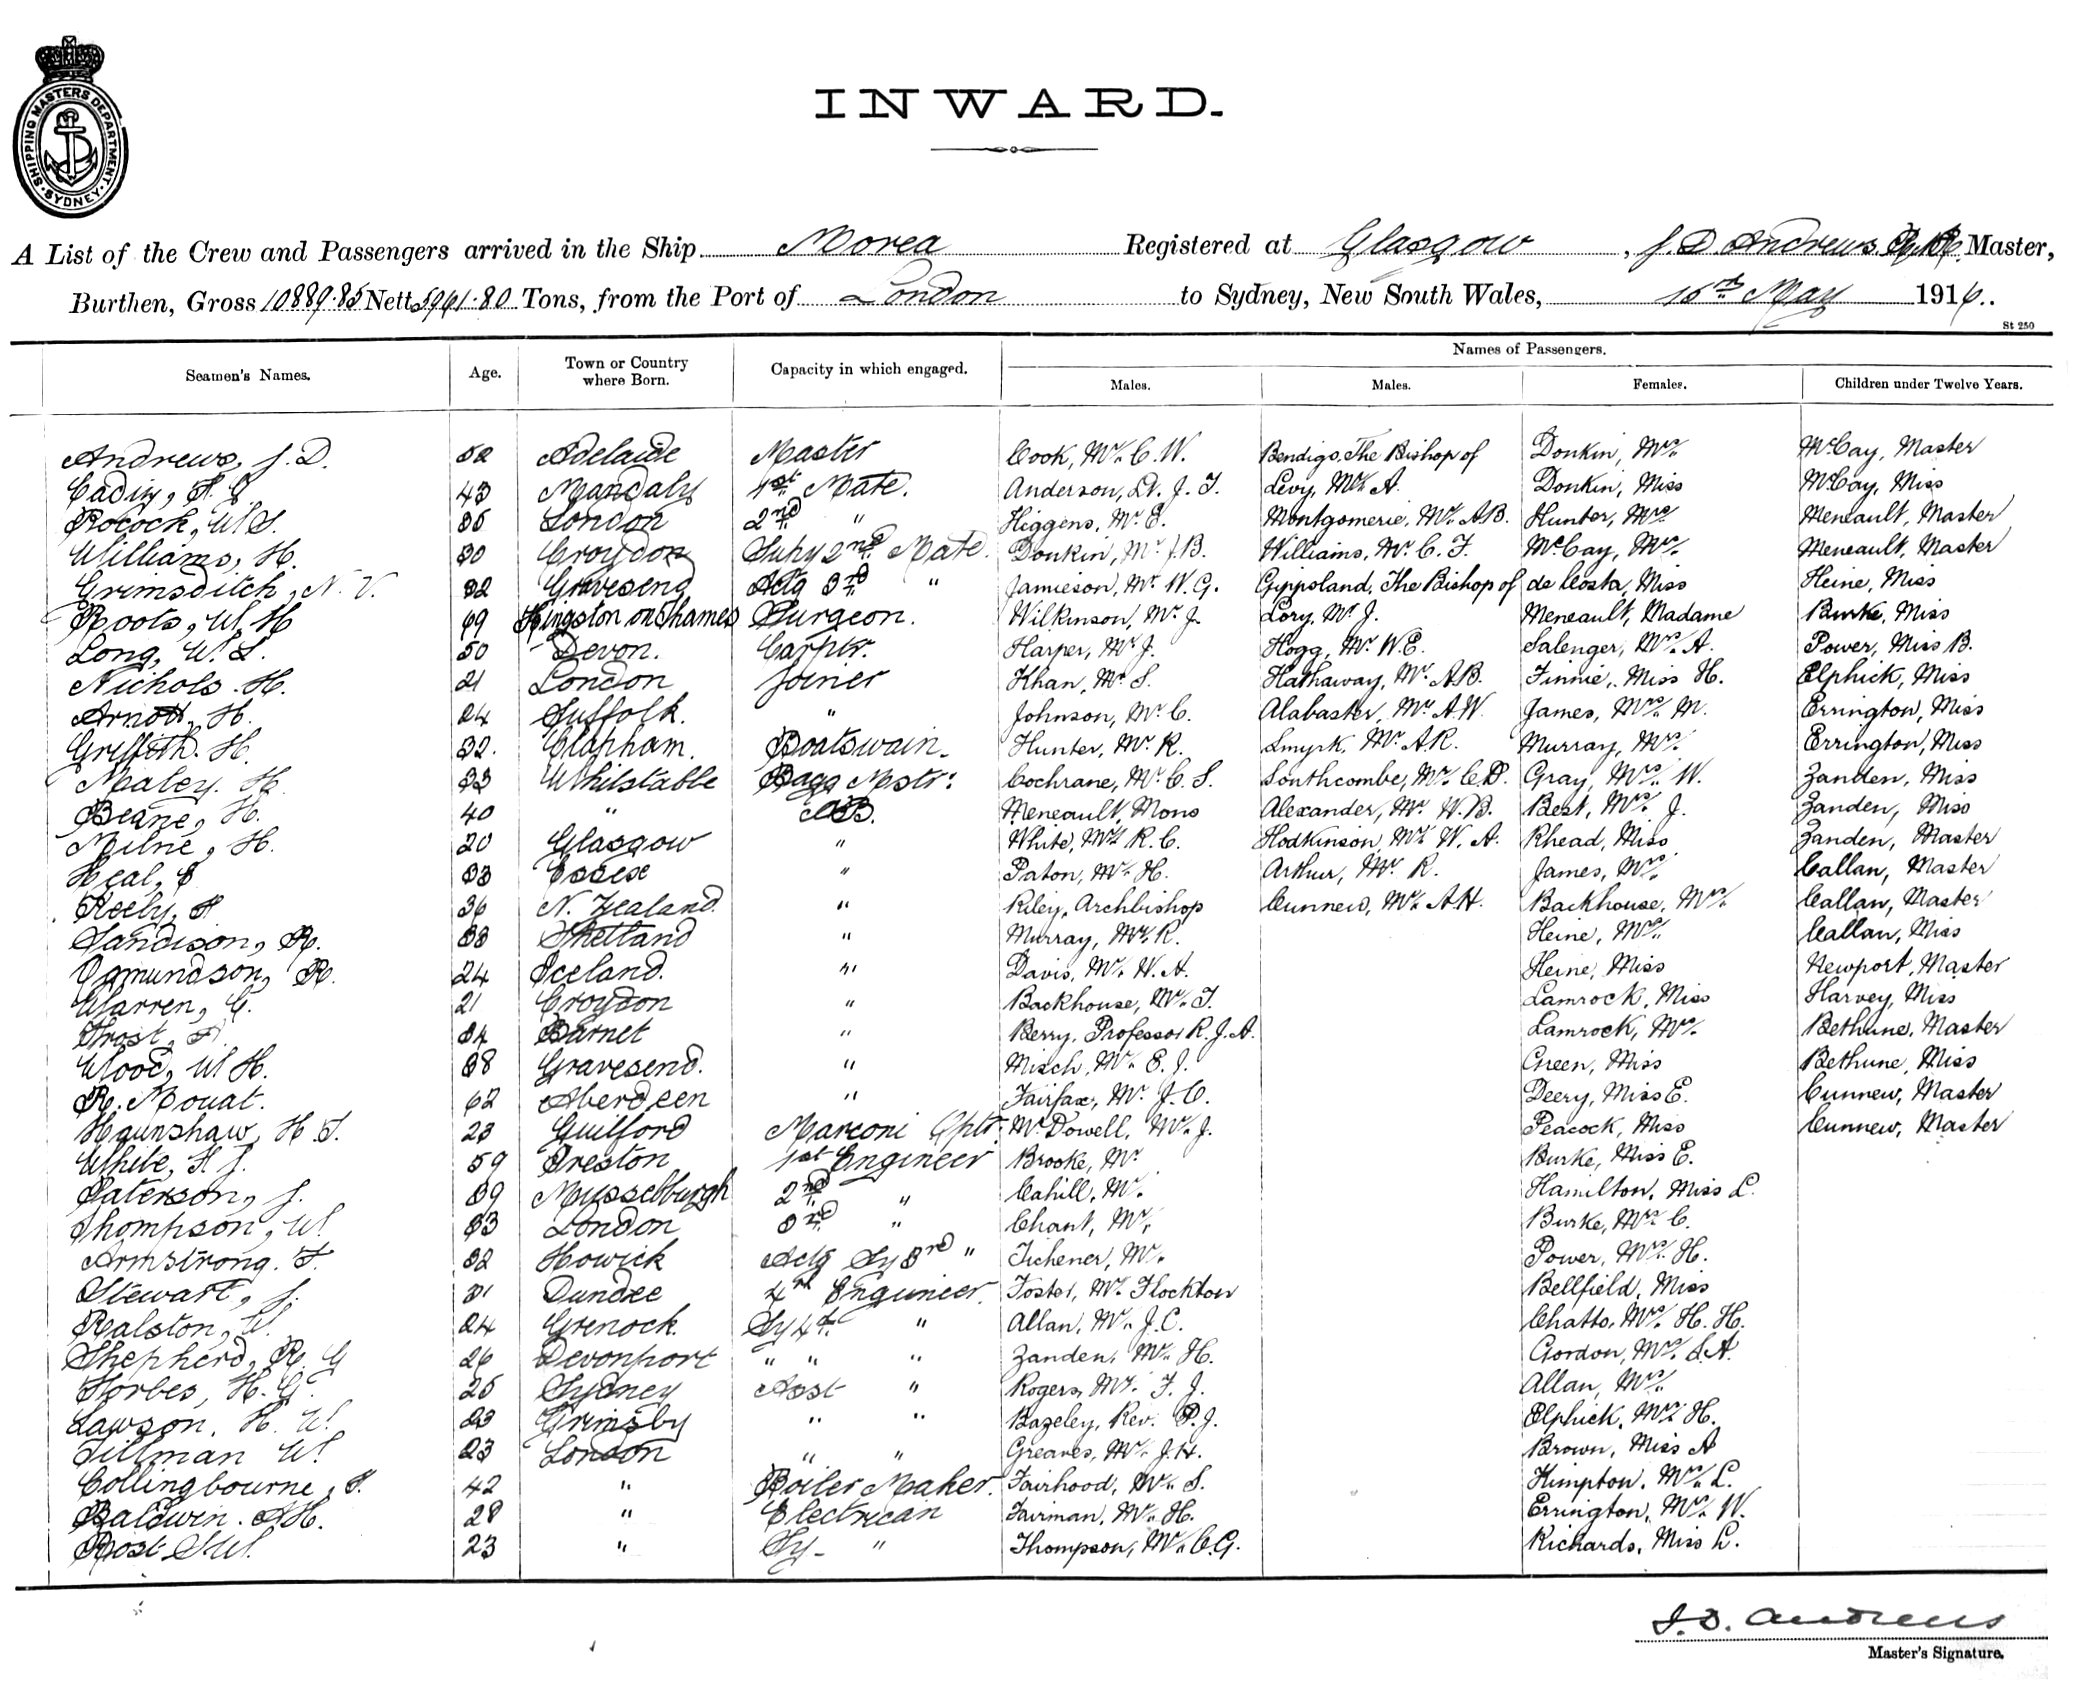 SHIPPING MASTERS DEPARTMENT · SYDNEY ·
INWARD.
A List of the Crew and Passengers arrived in the Ship Morea Registered at Glasgow, J. D. Andrews Master,
Burthen, Gross 10889.85 Nett 5961.80 Tons, from the Port of London to Sydney, New South Wales, May 1916.
St 250
Seamen's Names. Age. Town or Country where Born. Capacity in which engaged. Names of Passengers.
Males. Males. Females. Children under Twelve Years.
Andrews, J. D. 52 Adelaide Master Cook, Mr. C. W. Bendigo, The Bishop of Donkin, Mrs. McCay, Master
43 Mandaly 1st Mate. Anderson, Lt. J. T. Levy, Mr. A. Donkin, Miss McCay, Miss
London 2nd " Higgens, Mr. E. Montgomerie, Mr. A.B. Hunter, Mrs. Meneault, Master
Williams, H. 30 Croydon Supy 2nd Mate. Donkin, Mr. J.B. Williams, Mr. C. F. McCay, Mrs. Meneault, Master
Grimsditch, N. V. 32 Gravesend Actg 3rd " Jamieson, Mr. W. G. Gippsland, The Bishop of de Costa, Miss Heine, Miss
Roots, W. H 69 Kingston on Thames Surgeon. Wilkinson, Mr. J. Lory, Mr. J. Meneault, Madame Burke, Miss
Long, W. L. 50 Devon. Carptr. Harper, Mr. J. Hogg, Mr. W.E. Salenger, Mrs. A. Power, Miss B.
Nichols. H. 21 London Joiner Khan, Mr. S. Hathaway, Mr. A.B. Finnie, Miss H. Elphick, Miss
Arnott, H. 24 Suffolk. " Johnson, Mr. C. Alabaster, Mr. A.W. James, Mrs. M. Errington, Miss
Griffith. H. 32. Clapham. Boatswain. Hunter, Mr. R. Smyrk, Mr. A.R. Murray, Mrs. Errington, Miss
Maley. H. 33 Whitstable Bagg Mstr: Cochrane, Mr. C. S. Southcombe, Mr. C.D. Gray, Mrs. W. Zanden, Miss
Beane, H. 40 " AB. Meneault, Mons Alexander, Mr. W.B. Best, Mrs. J. Zanden, Miss
Milne, H. 20 Glasgow " White, Mr. R. C. Hodkinson, Mr. W. A. Rhead, Miss Zanden, Master
Heal, E 33 Essex " Paton, Mr. H. Arthur, Mr. R. James, Mrs. Callan, Master
36 N. Zealand. " Riley, Archbishop Cunnew, Mr. A.H. Backhouse, Mrs. Callan, Master
Sandison, R. 38 Shetland " Murray, Mr. R. Heine, Mrs. Callan, Miss
Ogmundson, R. 24 Iceland. " Davis, Mr. W. A. Heine, Miss Newport, Master
Warren, G. 21 Croydon " Backhouse, Mr. T. Lamrock, Miss Harvey, Miss
Frost, F. 34 Barnet " Berry, Professor R. J. A. Lamrock, Mrs. Bethune, Master
Wood, W H. 38 Gravesend. " Misch, Mr. E. J. Green, Miss Bethune, Miss
R. Mouat. 62 Aberdeen " Fairfax, Mr. J. C. Deery, Miss E. Cunnew, Master
Haunshaw, H. T. 23 Guilford Marconi Optr. McDowell, Mr. J. Peacock, Miss Cunnew, Master
White, F. J. 59 Preston 1st Engineer Brooke, Mr. Burke, Miss E.
Paterson, J. 39 Musselburgh 2nd " Cahill, Mr. Hamilton, Miss L.
Thompson, W. 33 London 3rd " Chant, Mr. Burke, Mrs. C.
Armstrong. T. 32 Howick Actg Sy 3rd " Tichener, Mr. Power, Mrs. H.
Stewart, J. 31 Dundee 4th Engineer. Foster, Mr. Flockton Bellfield, Miss
Ralston, W. 24 Grenock. Sy 4th. " Allan, Mr. J.C. Chatto, Mrs. H. H.
Shepherd, R. G 26 Devonport " " " Zanden, Mr. H. Gordon, Mrs. S. A.
Forbes, H. G. 25 Sydney Asst " Rogers, Mr. F. J. Allan, Mrs.
Lawson, H. W. 23 Grimsby " " Bazeley, Rev. P. J. Elphick, Mrs. H.
Tillman W. 23 London " " Greaves, Mr. J.H. Brown, Miss A
Collingbourne, F. 42 " Boiler Maker. Fairhood, Mr. S. Kimpton, Mrs. L.
Baldwin. A H. 28 " Electrican Fairman, Mr. H. Errington, Mrs. W.
23 " Sy- " Thompson, Mr. C.G. Richards, Miss L.
J. D. Andrews
Master's Signature.